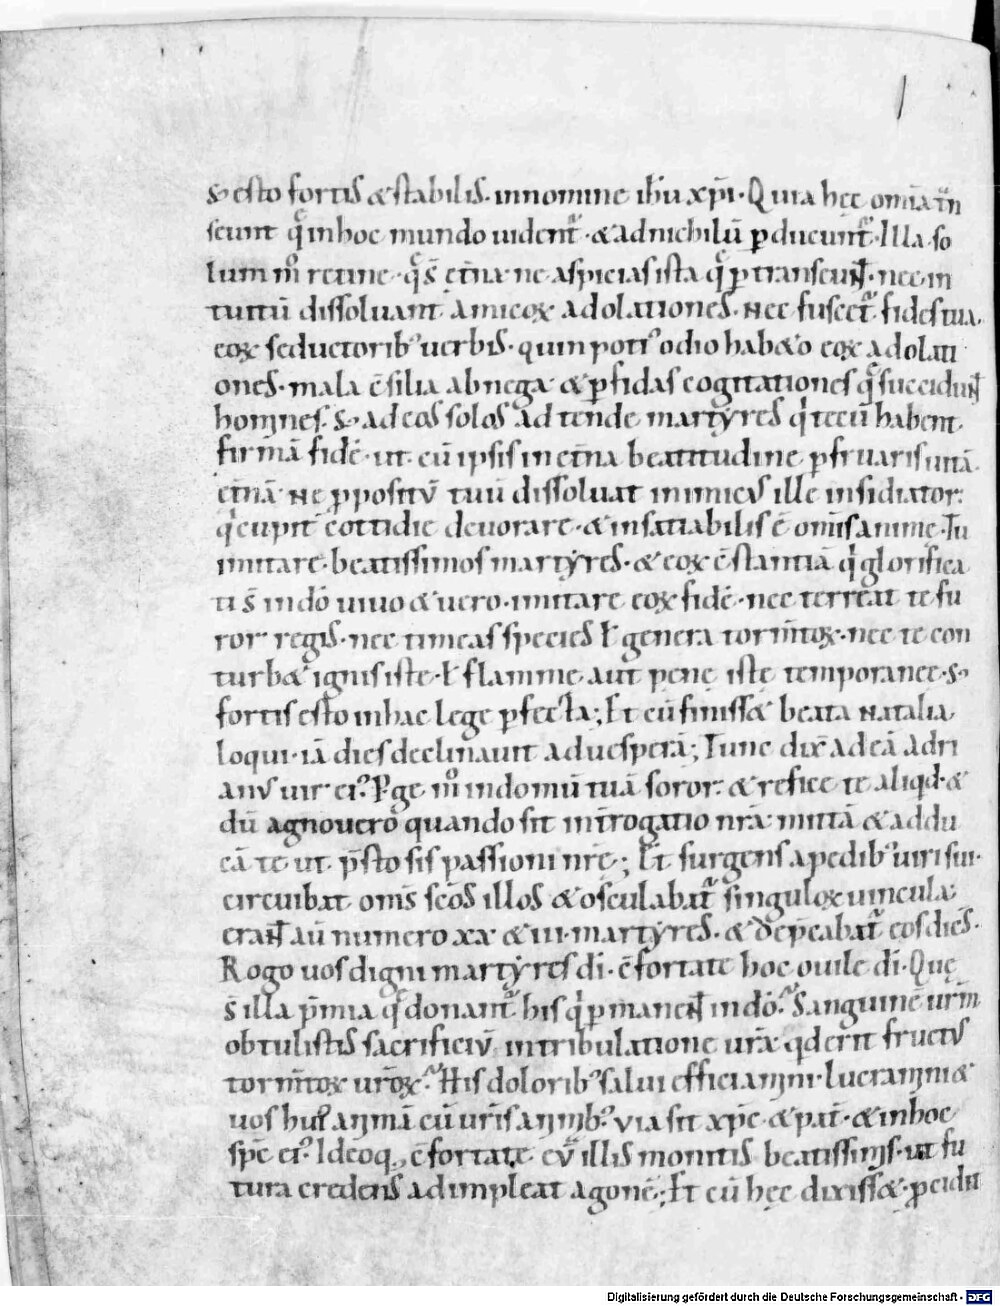 s; esto fortis & stabilis. in nomine ihu xpi. Quia hęc omnia trn
seunt q̄ in hoc mundo uident̄. & ad nichilū p̄ducunt̄. Illa so
lum m̊ retine. q̄ s̄ etn̄a. ne aspicias ista q̄ p̄transeunt. nec in
tuitū dissoluant amicoꝝ adolationes. Nec fuscet̄ fides tua.
eoꝝ seductorib; uerbis. quin poti᾿ odio hab&o eoꝝ adolati
ones. mala c̄silia abnega & p̄fidas cogitationes q̄ succidunt
homines. s; ad eos solos adtende martyres q̇ tecū habent
firmā fidē. ut cū ipsis in etn̄a beatitudine p̄fruaris uitā
etn̄ā. Ne ꝓpositū tuū dissoluat inimicus ille insidiator.
q̇ cupit cottidie deuorare. & insatiabilis ē om̄is anime. Tu
imitare beatissimos martyres. & eoꝝ c̄stantiā q̇ glorifica
ti s̄ in dō uiuo & uero. imitare eoꝝ fidē. nec terreat te fu
ror regis. nec timeas species ł genera torm̄toꝝ. nec te con
turb& ignis iste. ł flamme aut penę iste temporanee. s;
fortis esto in hac lege p̄fecta; Et cū finiss& beata Natalia
loqui. iā dies declinauit ad uesperā; Tunc dix̄ ad eā adri
anus uir ei᾿. P̄ge m̊ in domū tuā soror. & refice te aliqd. &
dū agnouero quando sit int̄rogatio nr̄a. mittā & addu
cā te ut p̄sto sis passioni nr̄ę; Et surgens a pedib; uiri sui.
circuibat om̄s sc̄os illos & osculabat̄ singuloꝝ uincula.
erant aū numero xx & iii. martyres. & dep̄cabat̄ eos dicēs.
Rogo uos digni martyres dī. c̄fortate hoc ouile dī. Quę
s̄ illa p̄mia q̄ donant̄ his q̇ p̄manent in dō. Sanguinē urm̄
obtulistis sacrificiū. in tribulatione urā. qd erit fructus
torm̄toꝝ uroꝝ. His dolorib; salui efficiamini. lucramini &
uos hui᾿ animā cū uris animib;. uia sit xp̄c. & pat̄. & in hoc
spē ei᾿. Ideoq, c̄fortate eū illis monitis beatissimis. ut fu
tura credens adimpleat agonē; Et cū hęc dixiss&. p̄cidit